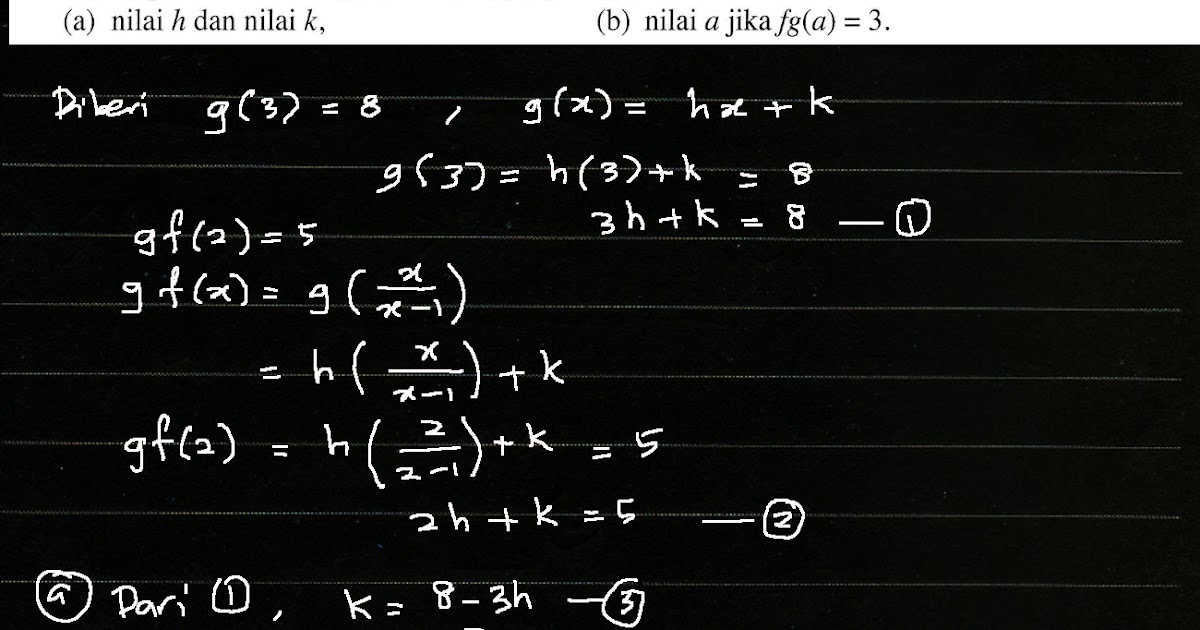 (a) nilai h dan nilai k, (b) nilai a jika fg(a) = 3.
Diberi g(3) = 8 , g(x) = hx + k
g(3) = h(3) + k = 8
3h + k = 8 — ①
gf(2) = 5
gf(x) = g(x/(x-1))
= h(x/(x-1)) + k
gf(2) = h(2/(2-1)) + k = 5
2h + k = 5 — ②
ⓐ Dari ①, k = 8 - 3h — ③